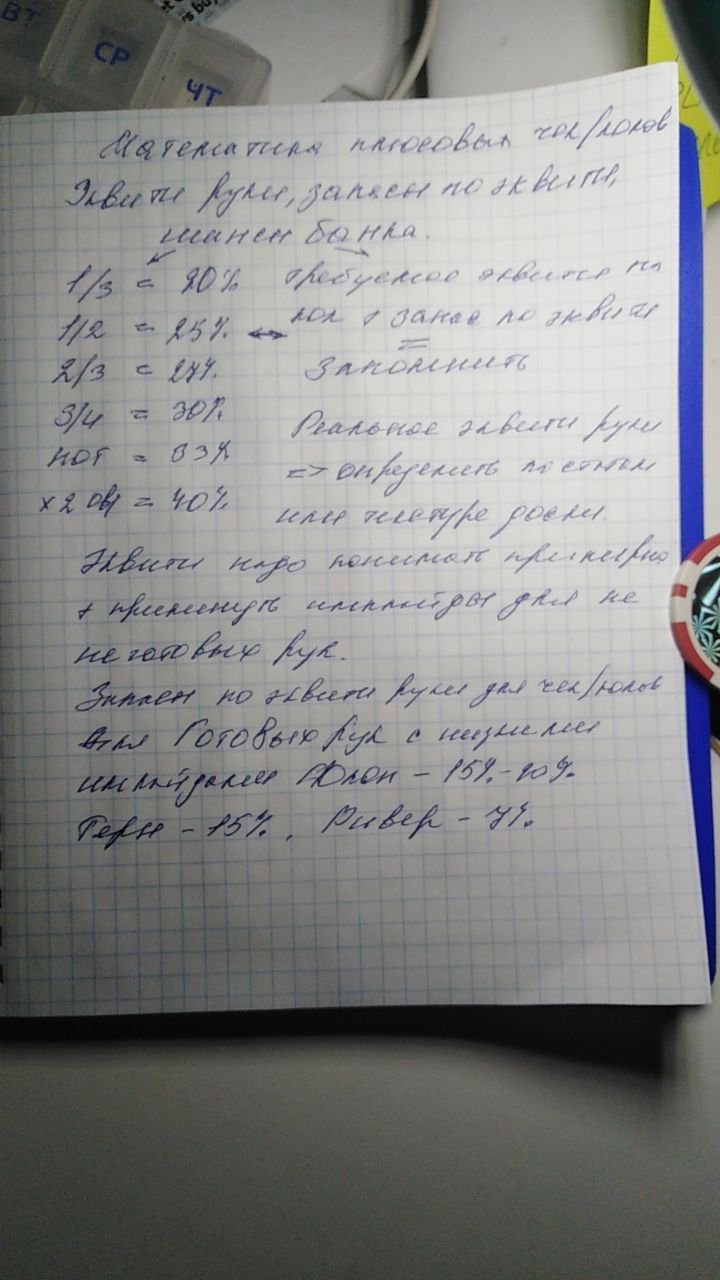 ВТ
СР
ЧТ
Математика плюсовых чек/колов
Эквити руки, запасы по эквити,
шансы банка.
1/3 = 20% требуемое эквити на
1/2 = 25% ↔ кол + запас по эквити
2/3 = 27% = Запомнить
3/4 = 30%
пот = 33%
x2 овр = 40%
Реальное эквити руки
=> определить по статам
или текстуре доски.
Эквити надо понимать примерно
+ прикинуть имплайды для не
неготовых рук.
Запасы по эквити руки для чек/колов
для Готовых рук с низкими
имплайдами Флоп - 15%-20%.
Терн - 15%, Ривер - 7%.